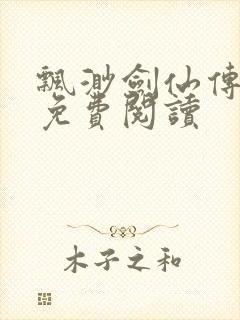 飄渺劍仙傳
免費閱讀
木子之和